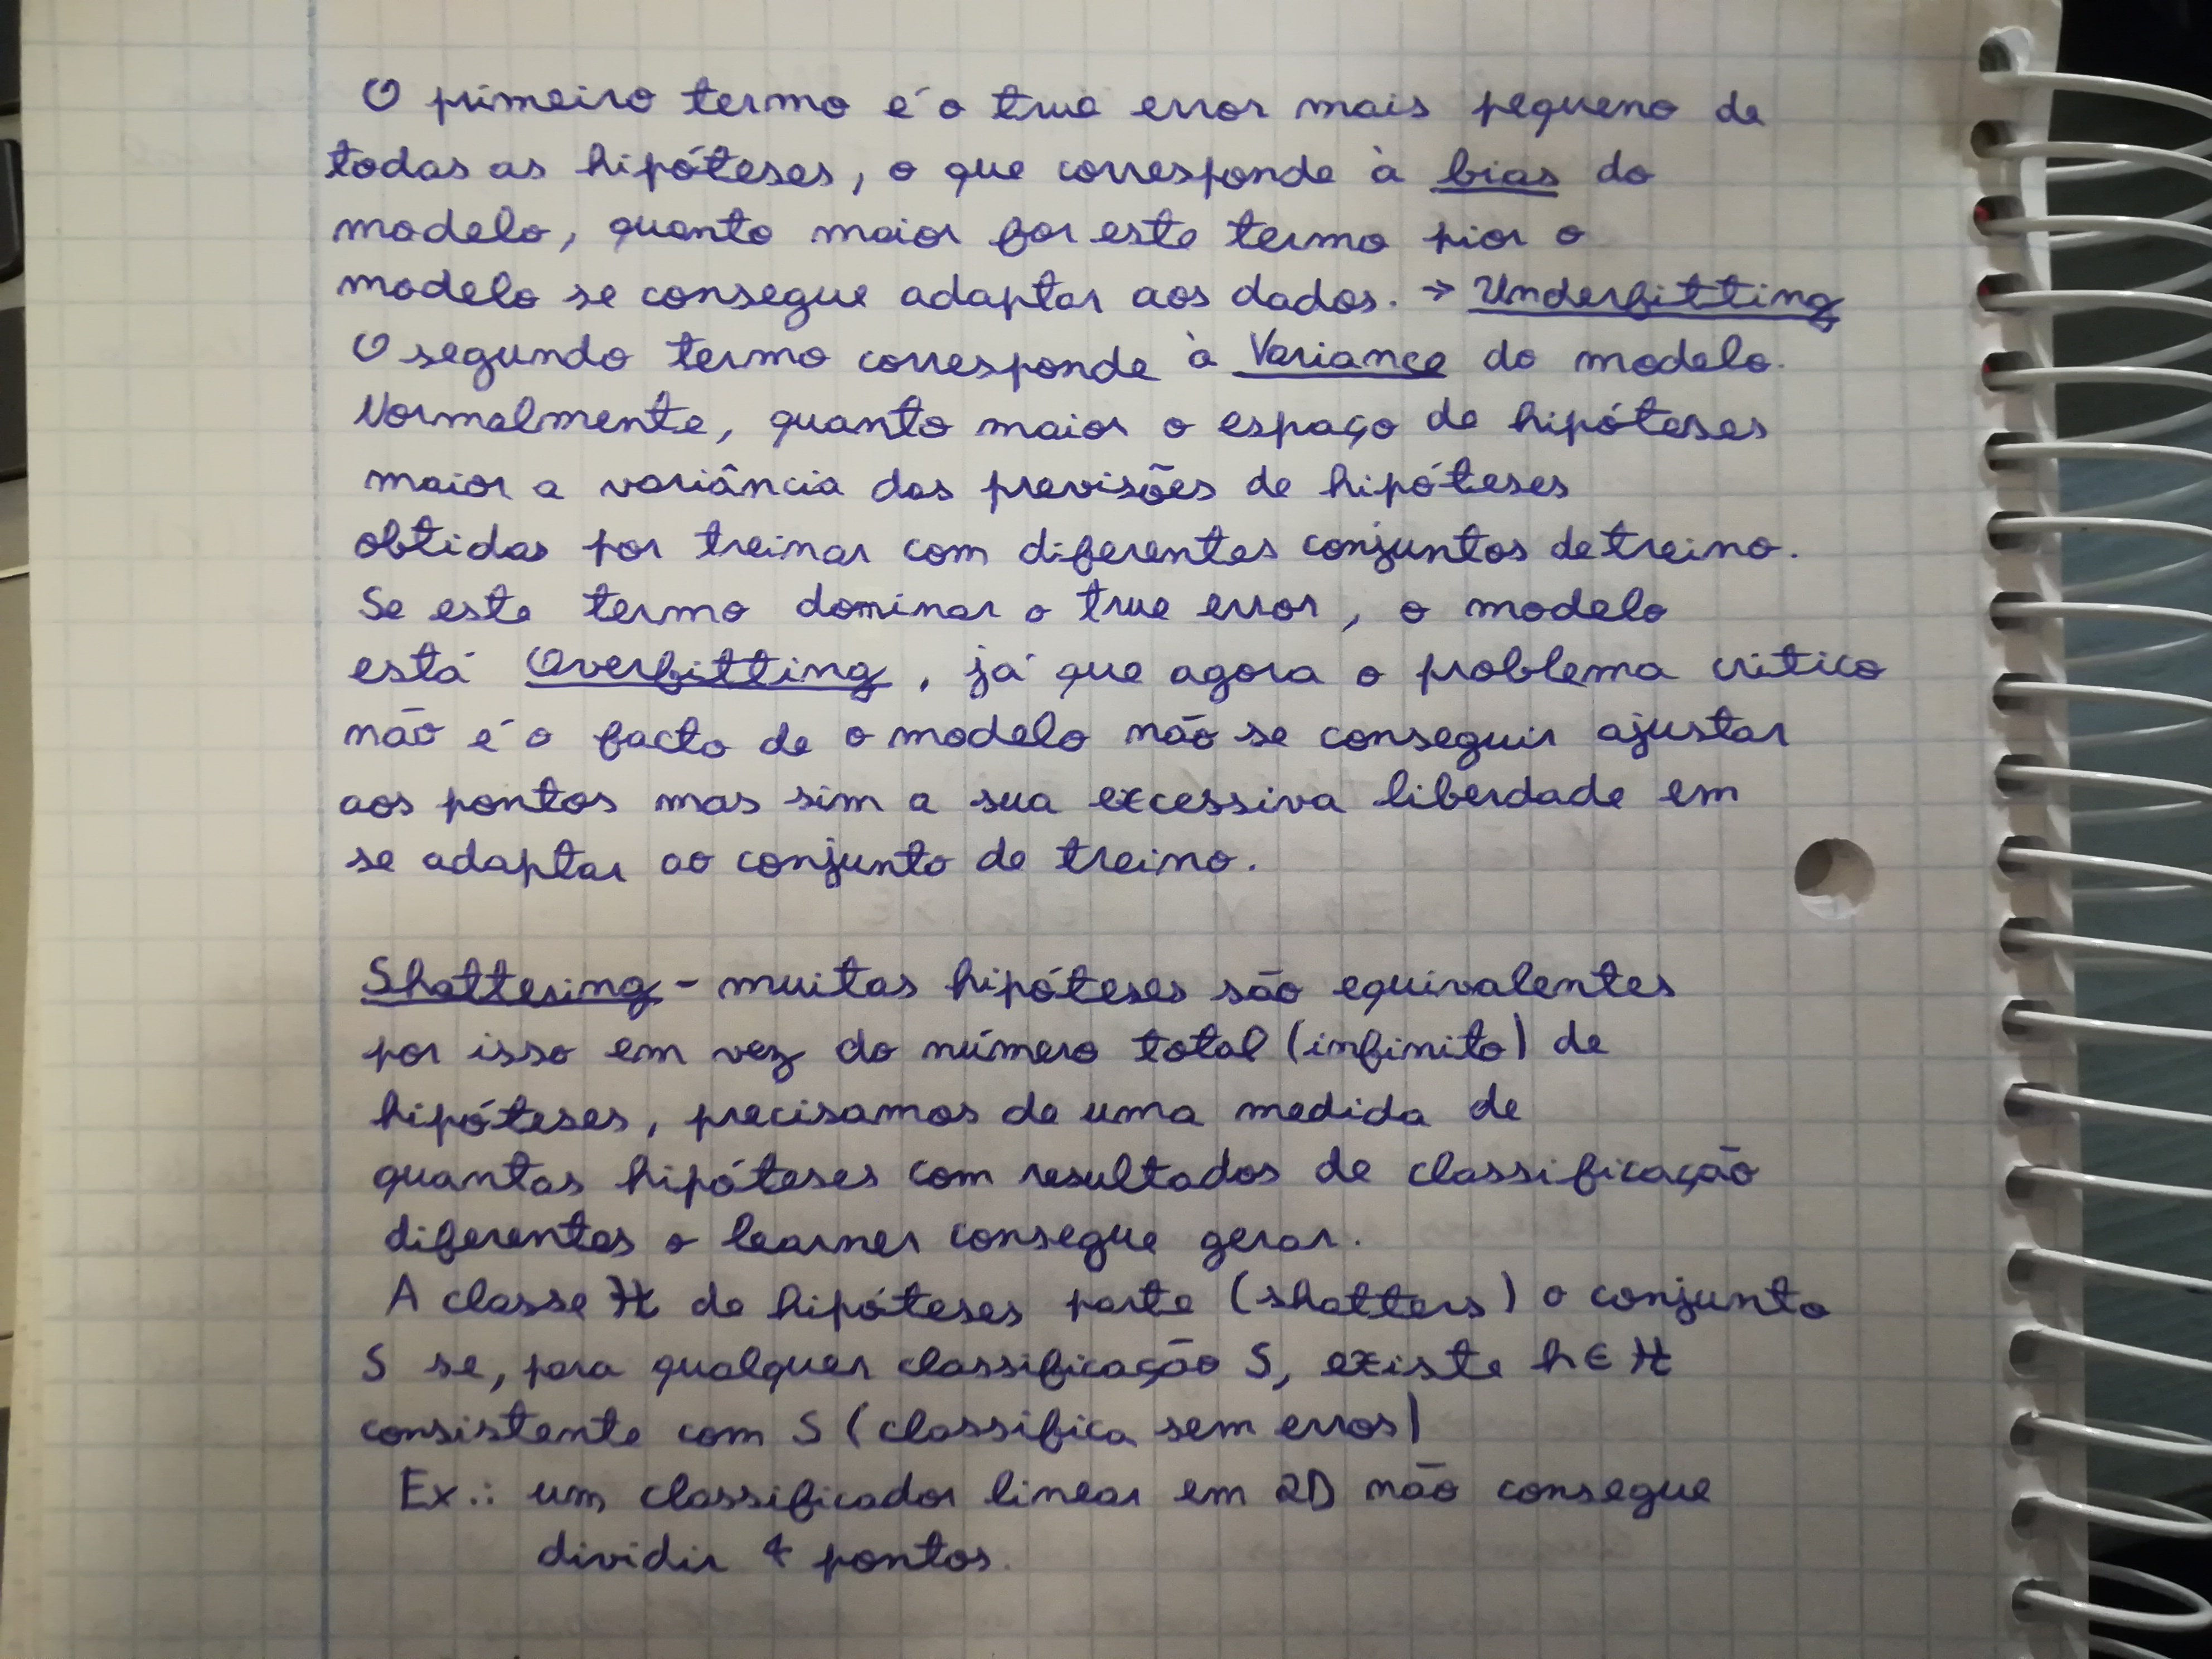 O primeiro termo é o true error mais pequeno de
todas as hipóteses, o que corresponde à bias do
modelo, quanto maior for este termo pior o
modelo se consegue adaptar aos dados. → Underfitting
O segundo termo corresponde à Variance do modelo.
Normalmente, quanto maior o espaço de hipóteses
maior a variância das previsões de hipóteses
obtidas por treinar com diferentes conjuntos de treino.
Se este termo dominar o true error, o modelo
está Overfitting, já que agora o problema critico
não é o facto de o modelo não se conseguir ajustar
aos pontos mas sim a sua excessiva liberdade em
se adaptar ao conjunto de treino.
Shattering - muitas hipóteses são equivalentes
por isso em vez do número total (infinito) de
hipóteses, precisamos de uma medida de
quantas hipóteses com resultados de classificação
diferentes o learner consegue gerar.
A classe H de hipóteses parte (shatters) o conjunto
S se, para qualquer classificação S, existe h ∈ H
consistente com S (classifica sem erros)
Ex.: um classificador linear em 2D não consegue
dividir 4 pontos.